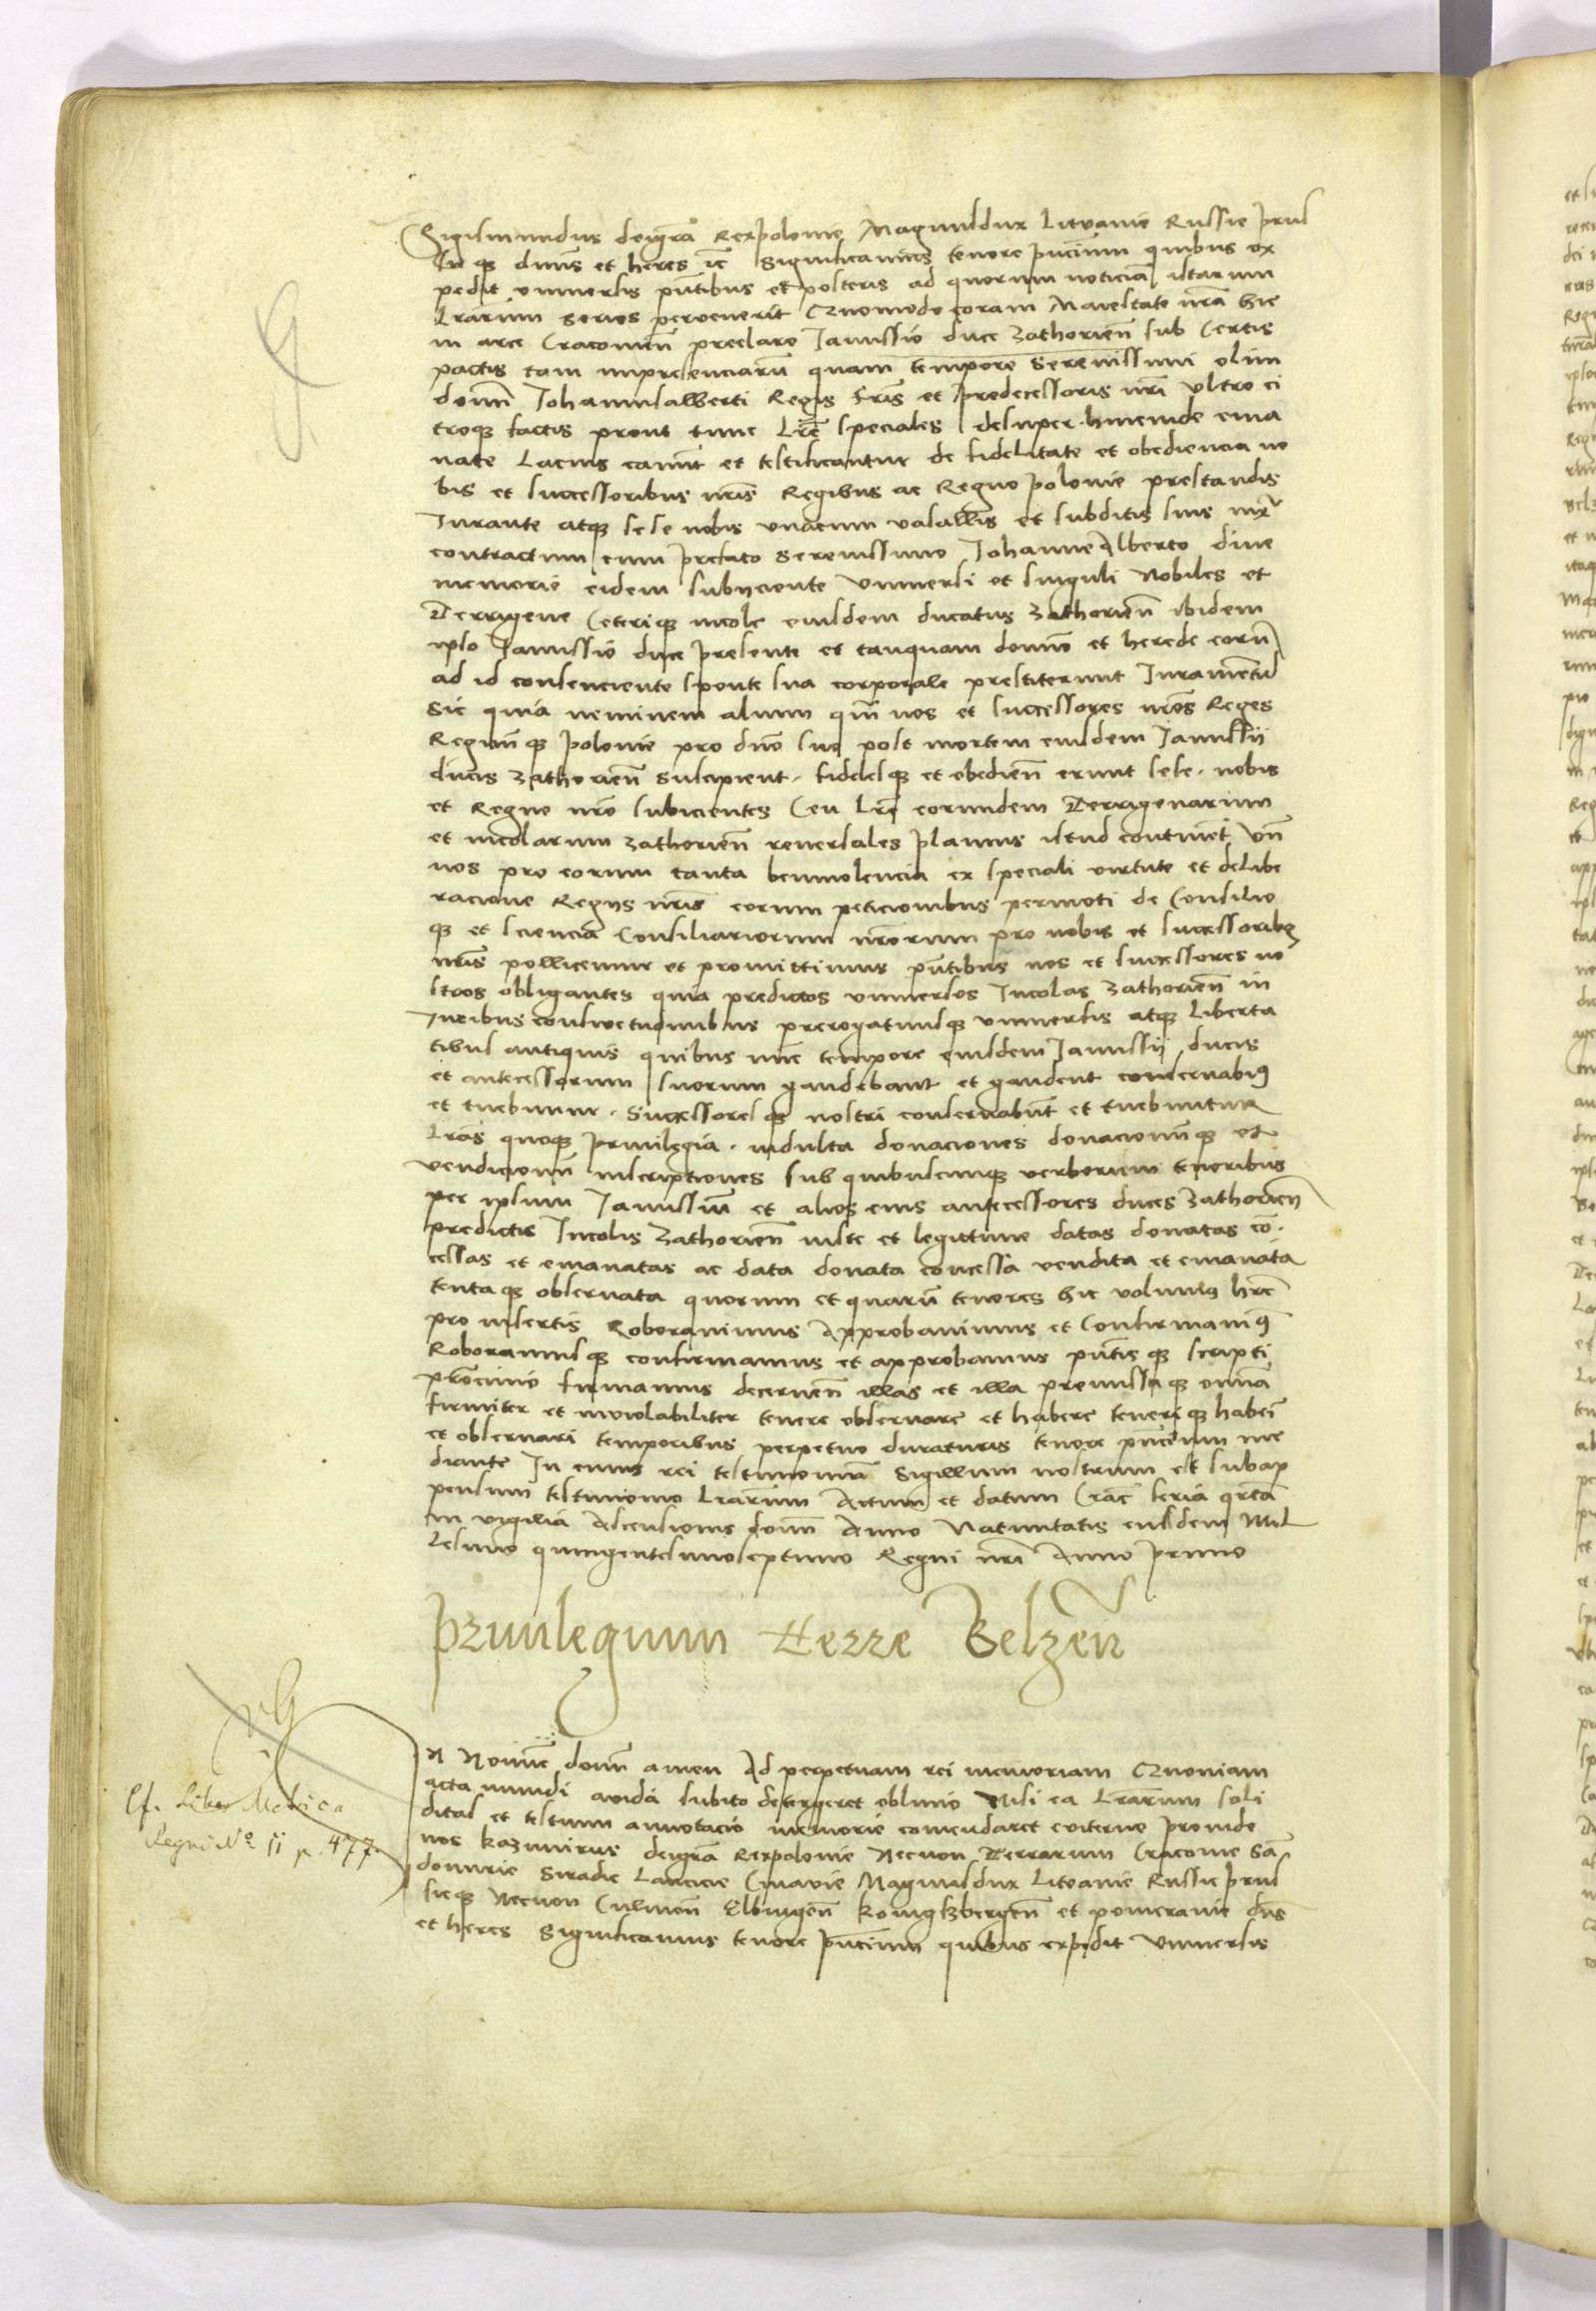 Sigismundus deigrā Rexpolonie Magnusdux Lituanie Russie prus
sie qȝ dn̄us et heres ꝛc Significamus tenore pn̄cium quibus ex
pedit vniuersis pn̄tibus et posteris ad quorum noticiam istarum
Lrārum series peruenerit Quomodo coram Maiestate nrā hic
in arce Cracouien̄ preclaro Janussio duce Zathorien̄ sub Certis
pactis tam inpresenciarū quam tempore Serenissimi olim
domn̄ Johannisalberti Regis fris̄ et predecessoris nrī vltro ci
troqȝ factis prout tunc Lrē speciales desuper hincinde ema
nate Lacius canunt et testificantur de fidelitate et obediencia no
bis et successoribus nrīs Regibus ac Regno polonie prestandis
Jurante atqȝ sese nobis vnacum vasallis et subditis suis iux̄
contractum cum prefato Serenissimo Johanne Alberto diue
memorie eidem subijciente Vniuersi et singuli Nobiles et
Terrigene Ceteriqȝ incole eiusdem ducatus Zathorien̄ ibidem
ipso Janussio duce presente et tanquam domino et herede eorū
ad id consenciente sponte sua corporale prestiterunt Juramentū
Sic quia neminem alium qm̄ nos et successores nrōs Reges
Regnum̄qȝ polonie pro dn̄o suo post mortem eiusdem Janussii
ducis Zathorien̄ suscipient. fidelesqȝ et obedien̄ erunt sese. nobis
et Regno nrō subicientes Ceu Lrē eorundem Terrigenarum
et incolarum Zathorien̄ reuersales planius istud continet Vn̄
nos pro eorum tanta beniuolencia ex speciali virtute et delibe
racione Regijs nrīs eorum peticionibus permoti de Consilio
qȝ et sciencia Consiliariorum nrōrum pro nobis et successoribȝ
nrīs pollicemur et promittimus pn̄tibus nos et successores no
stros obligantes quia predictos vniuersos Incolas Zathorien̄ in
Iuribus consuetudinibus prerogatiuisqȝ vniuersis atqȝ liberta
tibus antiquis quibus nūc tempore eiusdem Janussii ducis
et antecessorum suorum gaudebant et gaudent conseruabimꝰ
et tuebimur. Successoresqȝ nostri conseruabunt et tuebuntur
Lrās quoqȝ priuilegia. indulta donaciones donacionum̄qȝ et
vendicionū inscriptiones sub quibuscunqȝ verborum tenoribus
per ipsum Janussiū et alios eius antecessores duces Zathorien̄
predictis Incolis Zathorien̄ iuste et legittime datas donatas cō.
cessas et emanatas ac data donata concessa vendita et emanata
tentaqȝ obseruata quorum et quarū tenores hic volumus hrē
pro insertis Roborauimus Approbauimus et Confirmauimꝰ
Roboramusqȝ confirmamus et approbamus pn̄tisqȝ scripti
prōcinio firmamus decernen̄ illas et illa premissaqȝ omnia
firmiter et inuiolabiliter tenere obseruare et habere teneriqȝ haberi
et obseruari temporibus perpetuo duraturis tenore pn̄cium me
diante In cuius rei testimoniū Sigillum nostrum est subap
pensum testimonio Lrārum Actum et datum Crac̄ feria qr̄ta
in vigilia Ascensionis domn̄ Anno Natiuitatis eiusdem Mil
lesimo quingentesimoseptimo Regni nrī Anno primo
priuilegium terre Belzen̄
In Nomīe domn̄ amen Ad perpetuam rei memoriam Quoniam
acta mundi auida subito detergeret obliuio Nisi ea Lrārum soli
ditas et testium annotacio memorie comendaret eviterne proinde
nos kazimirus deigrā Rexpolonie Necnon Terrarum Cracouie San̄
domirie Siradie Lancicie Cuiauie Magnusdux Lituanie Russie prus
sieqȝ Necnon Culmen̄ Elbingen̄ konigszbergen̄ et pomeranie dn̄s
et heres Significamus tenore pn̄cium quibus expedit Vniuersis
Cf. Liber Metrica
Regni No 11 p. 477